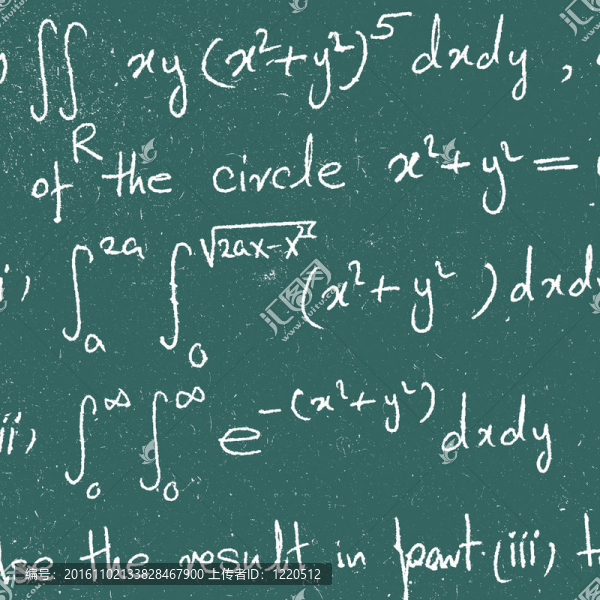 ∬_R xy (x²+y²)⁵ dxdy ,
of the circle x²+y² =
i) ∫_a^{2a} ∫_0^{√(2ax-x²)} (x²+y²) dxdy
ii) ∫_0^∞ ∫_0^∞ e^{-(x²+y²)} dxdy
the result in part (iii)
编号：20161102133828467900 上传者ID：1220512